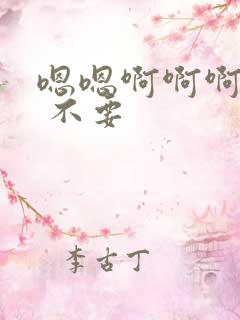 嗯嗯啊啊啊
不要
李古丁